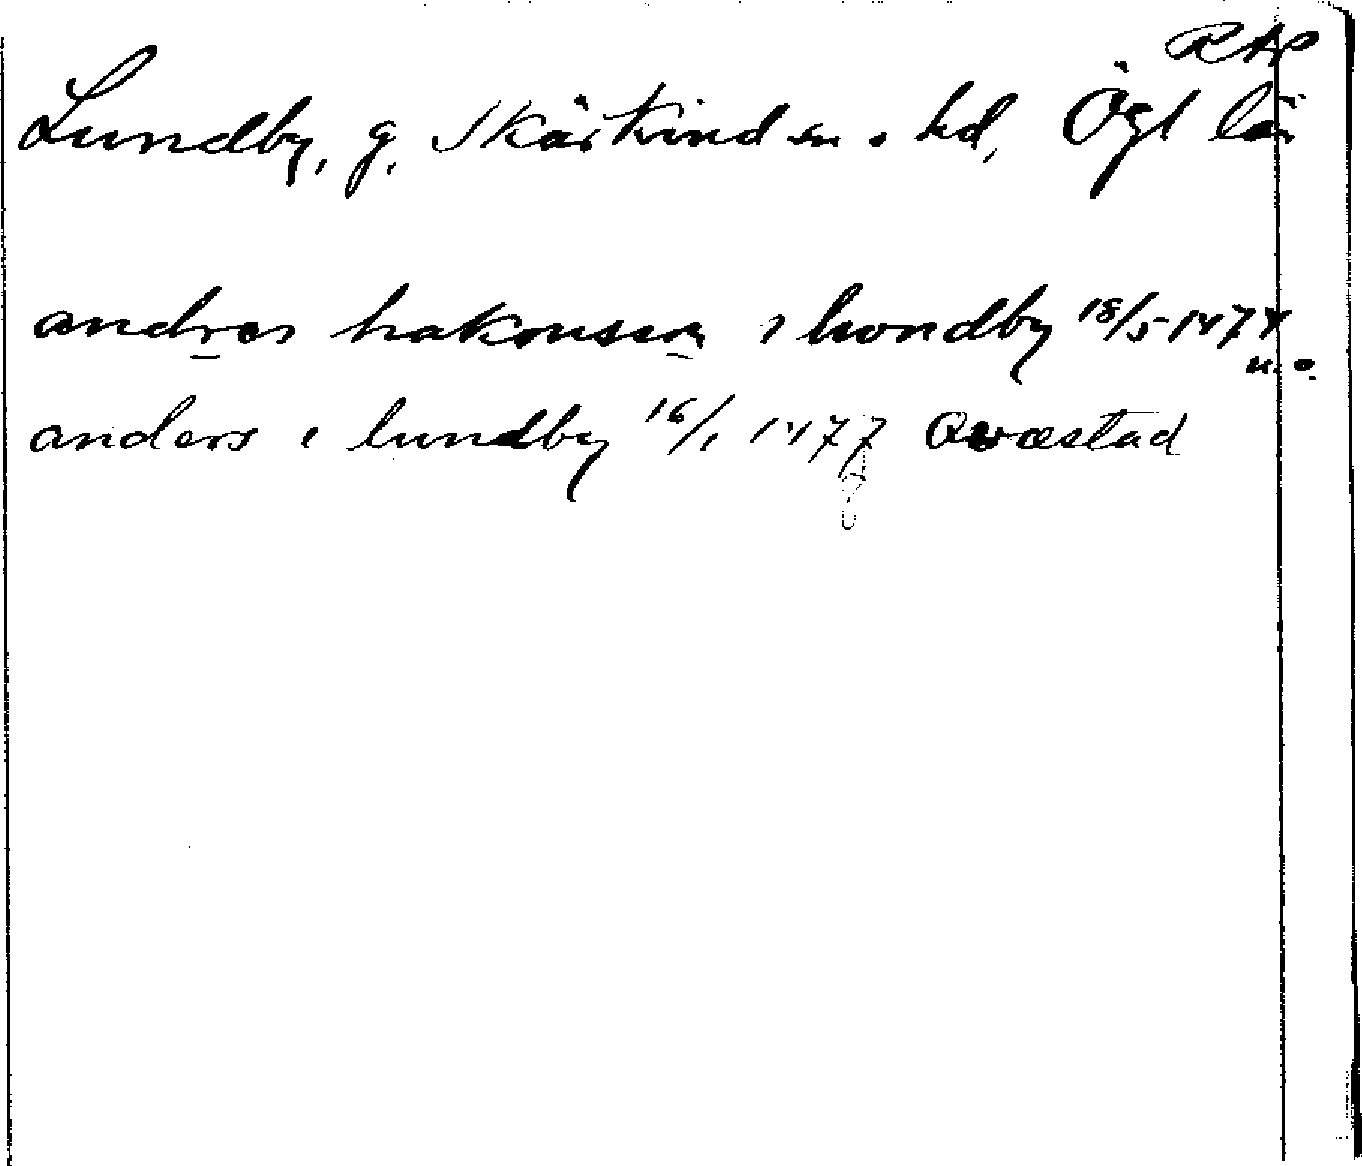 RAP
Lundby, g, Skärkind sn o hd, Ögl län
andres hakonsson i lwndby 18/5 1474
u. o.
anders i lundby 16/1 1477 Qvæstad